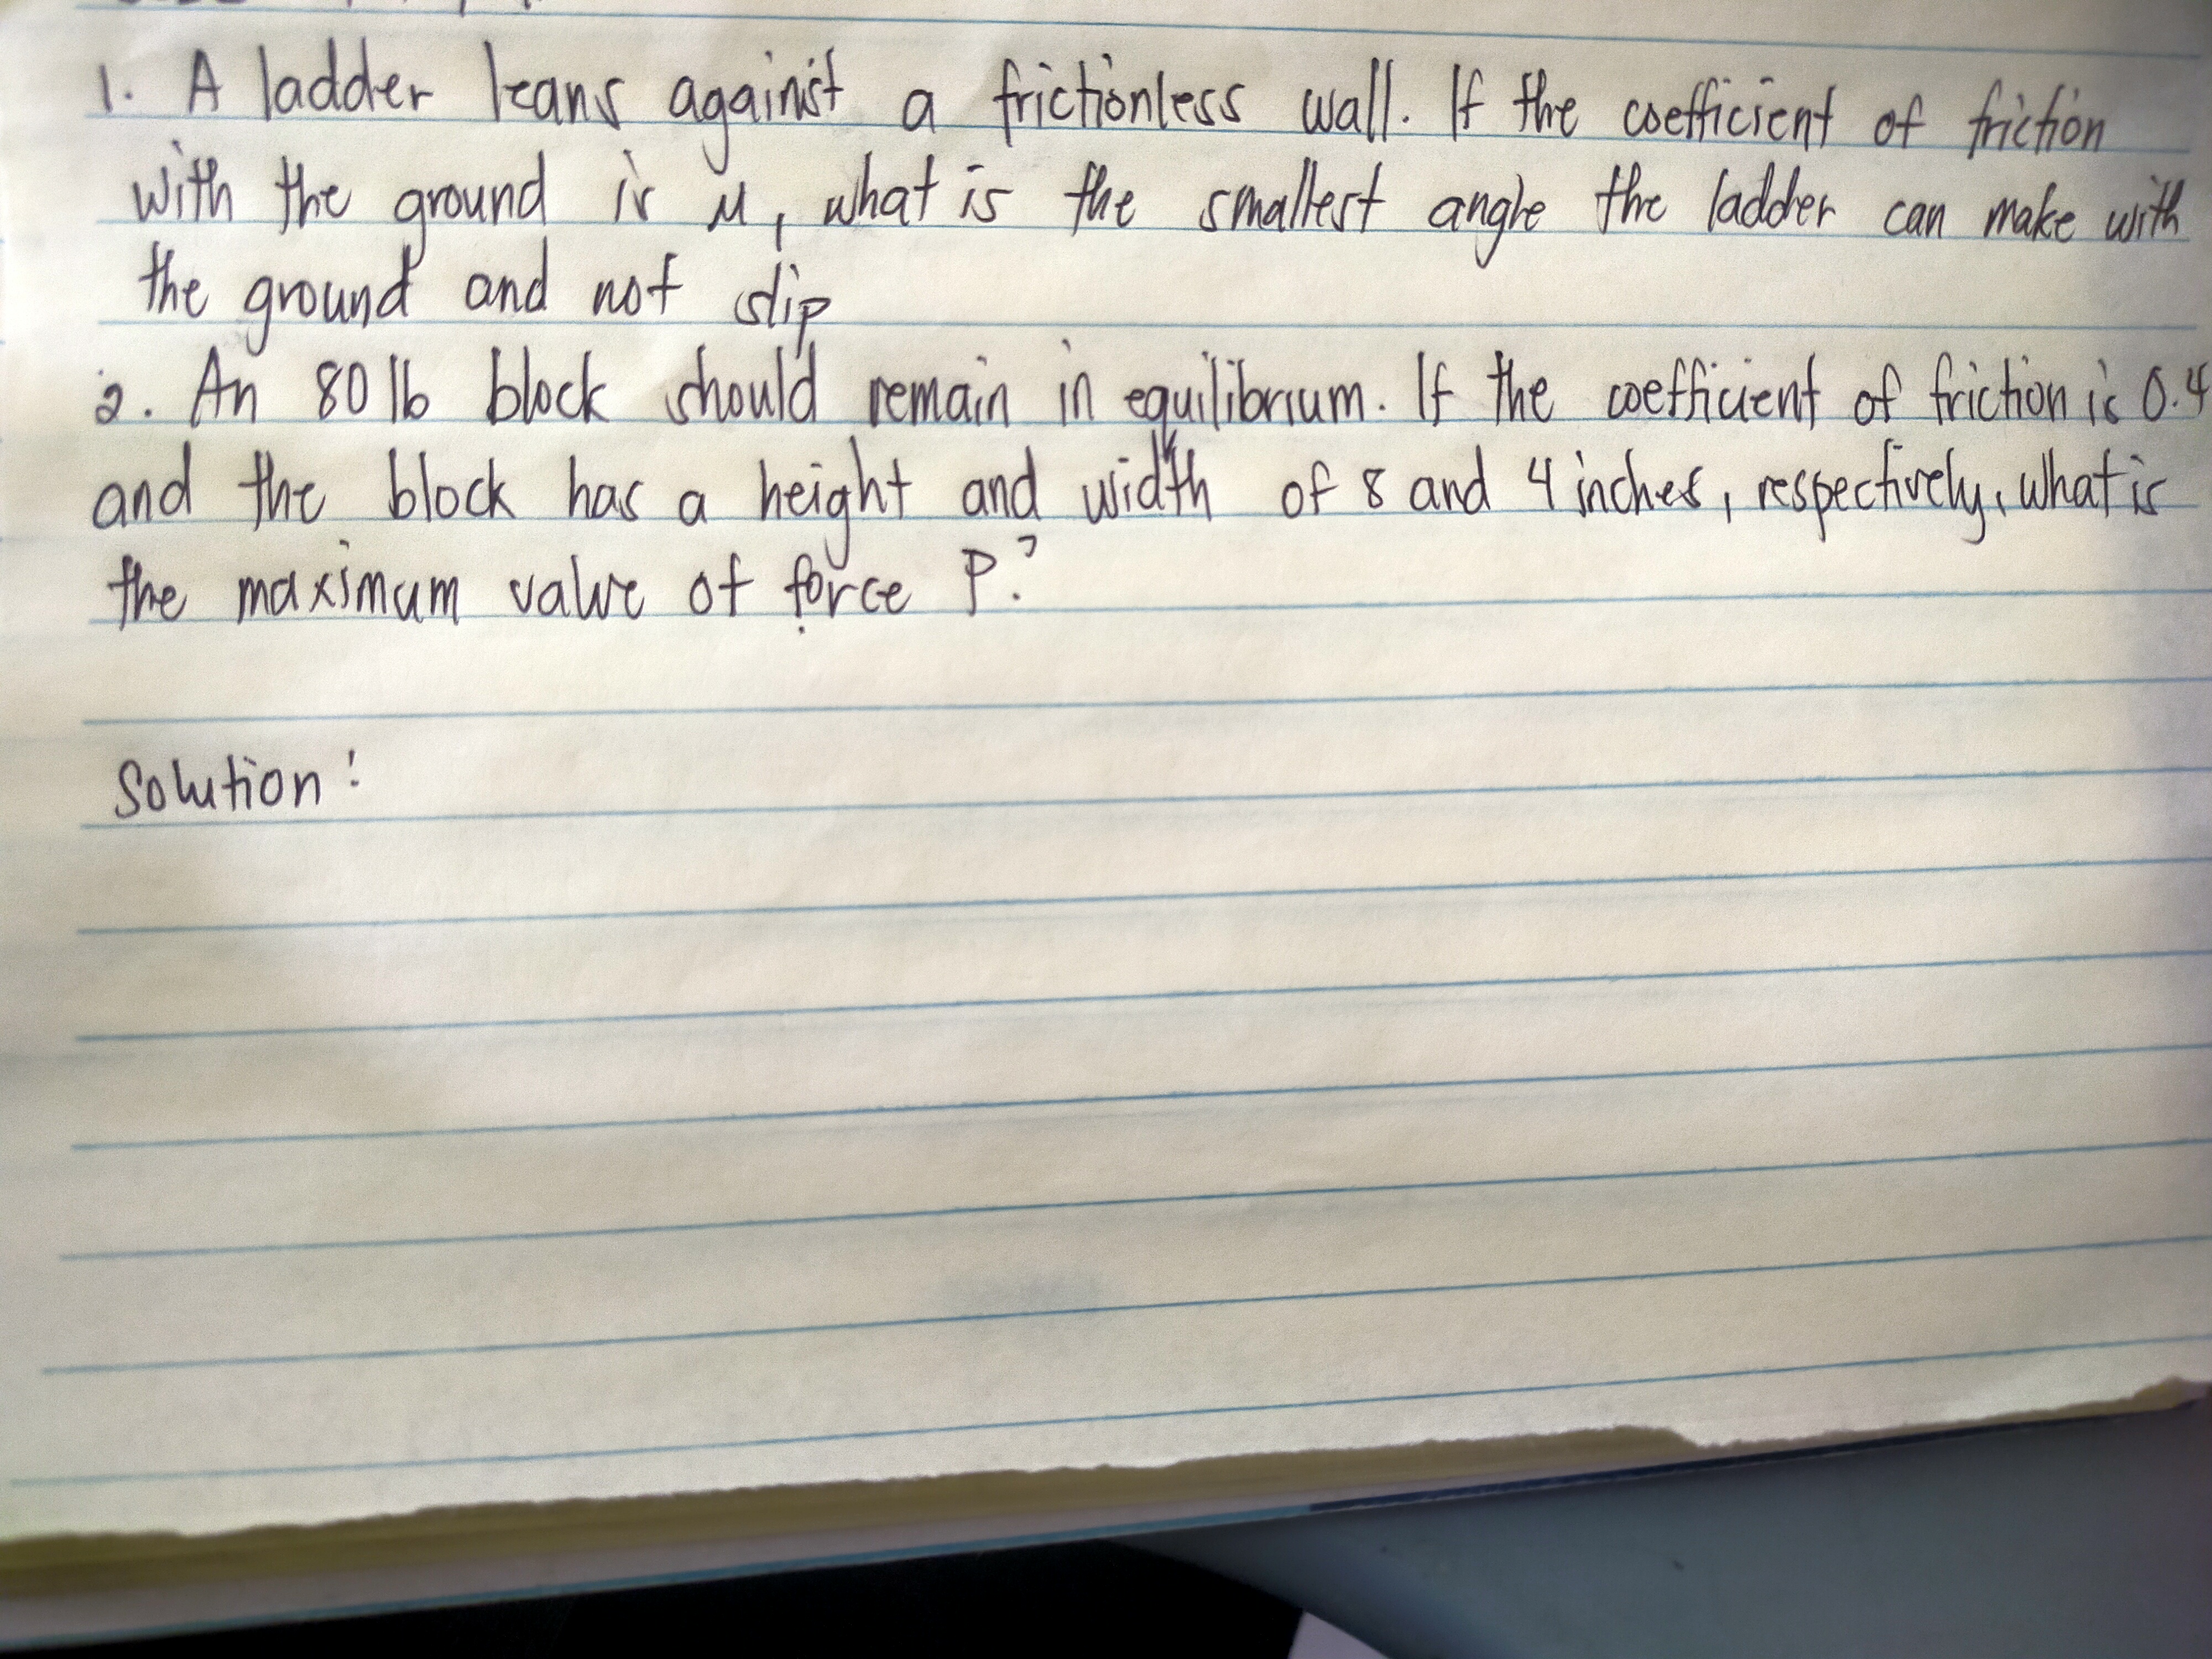 1. A ladder leans against a frictionless wall. If the coefficient of friction
with the ground is μ, what is the smallest angle the ladder can make with
the ground and not slip
2. An 80 lb block should remain in equilibrium. If the coefficient of friction is 0.4
and the block has a height and width of 8 and 4 inches, respectively, what is
the maximum value of force P?
Solution: